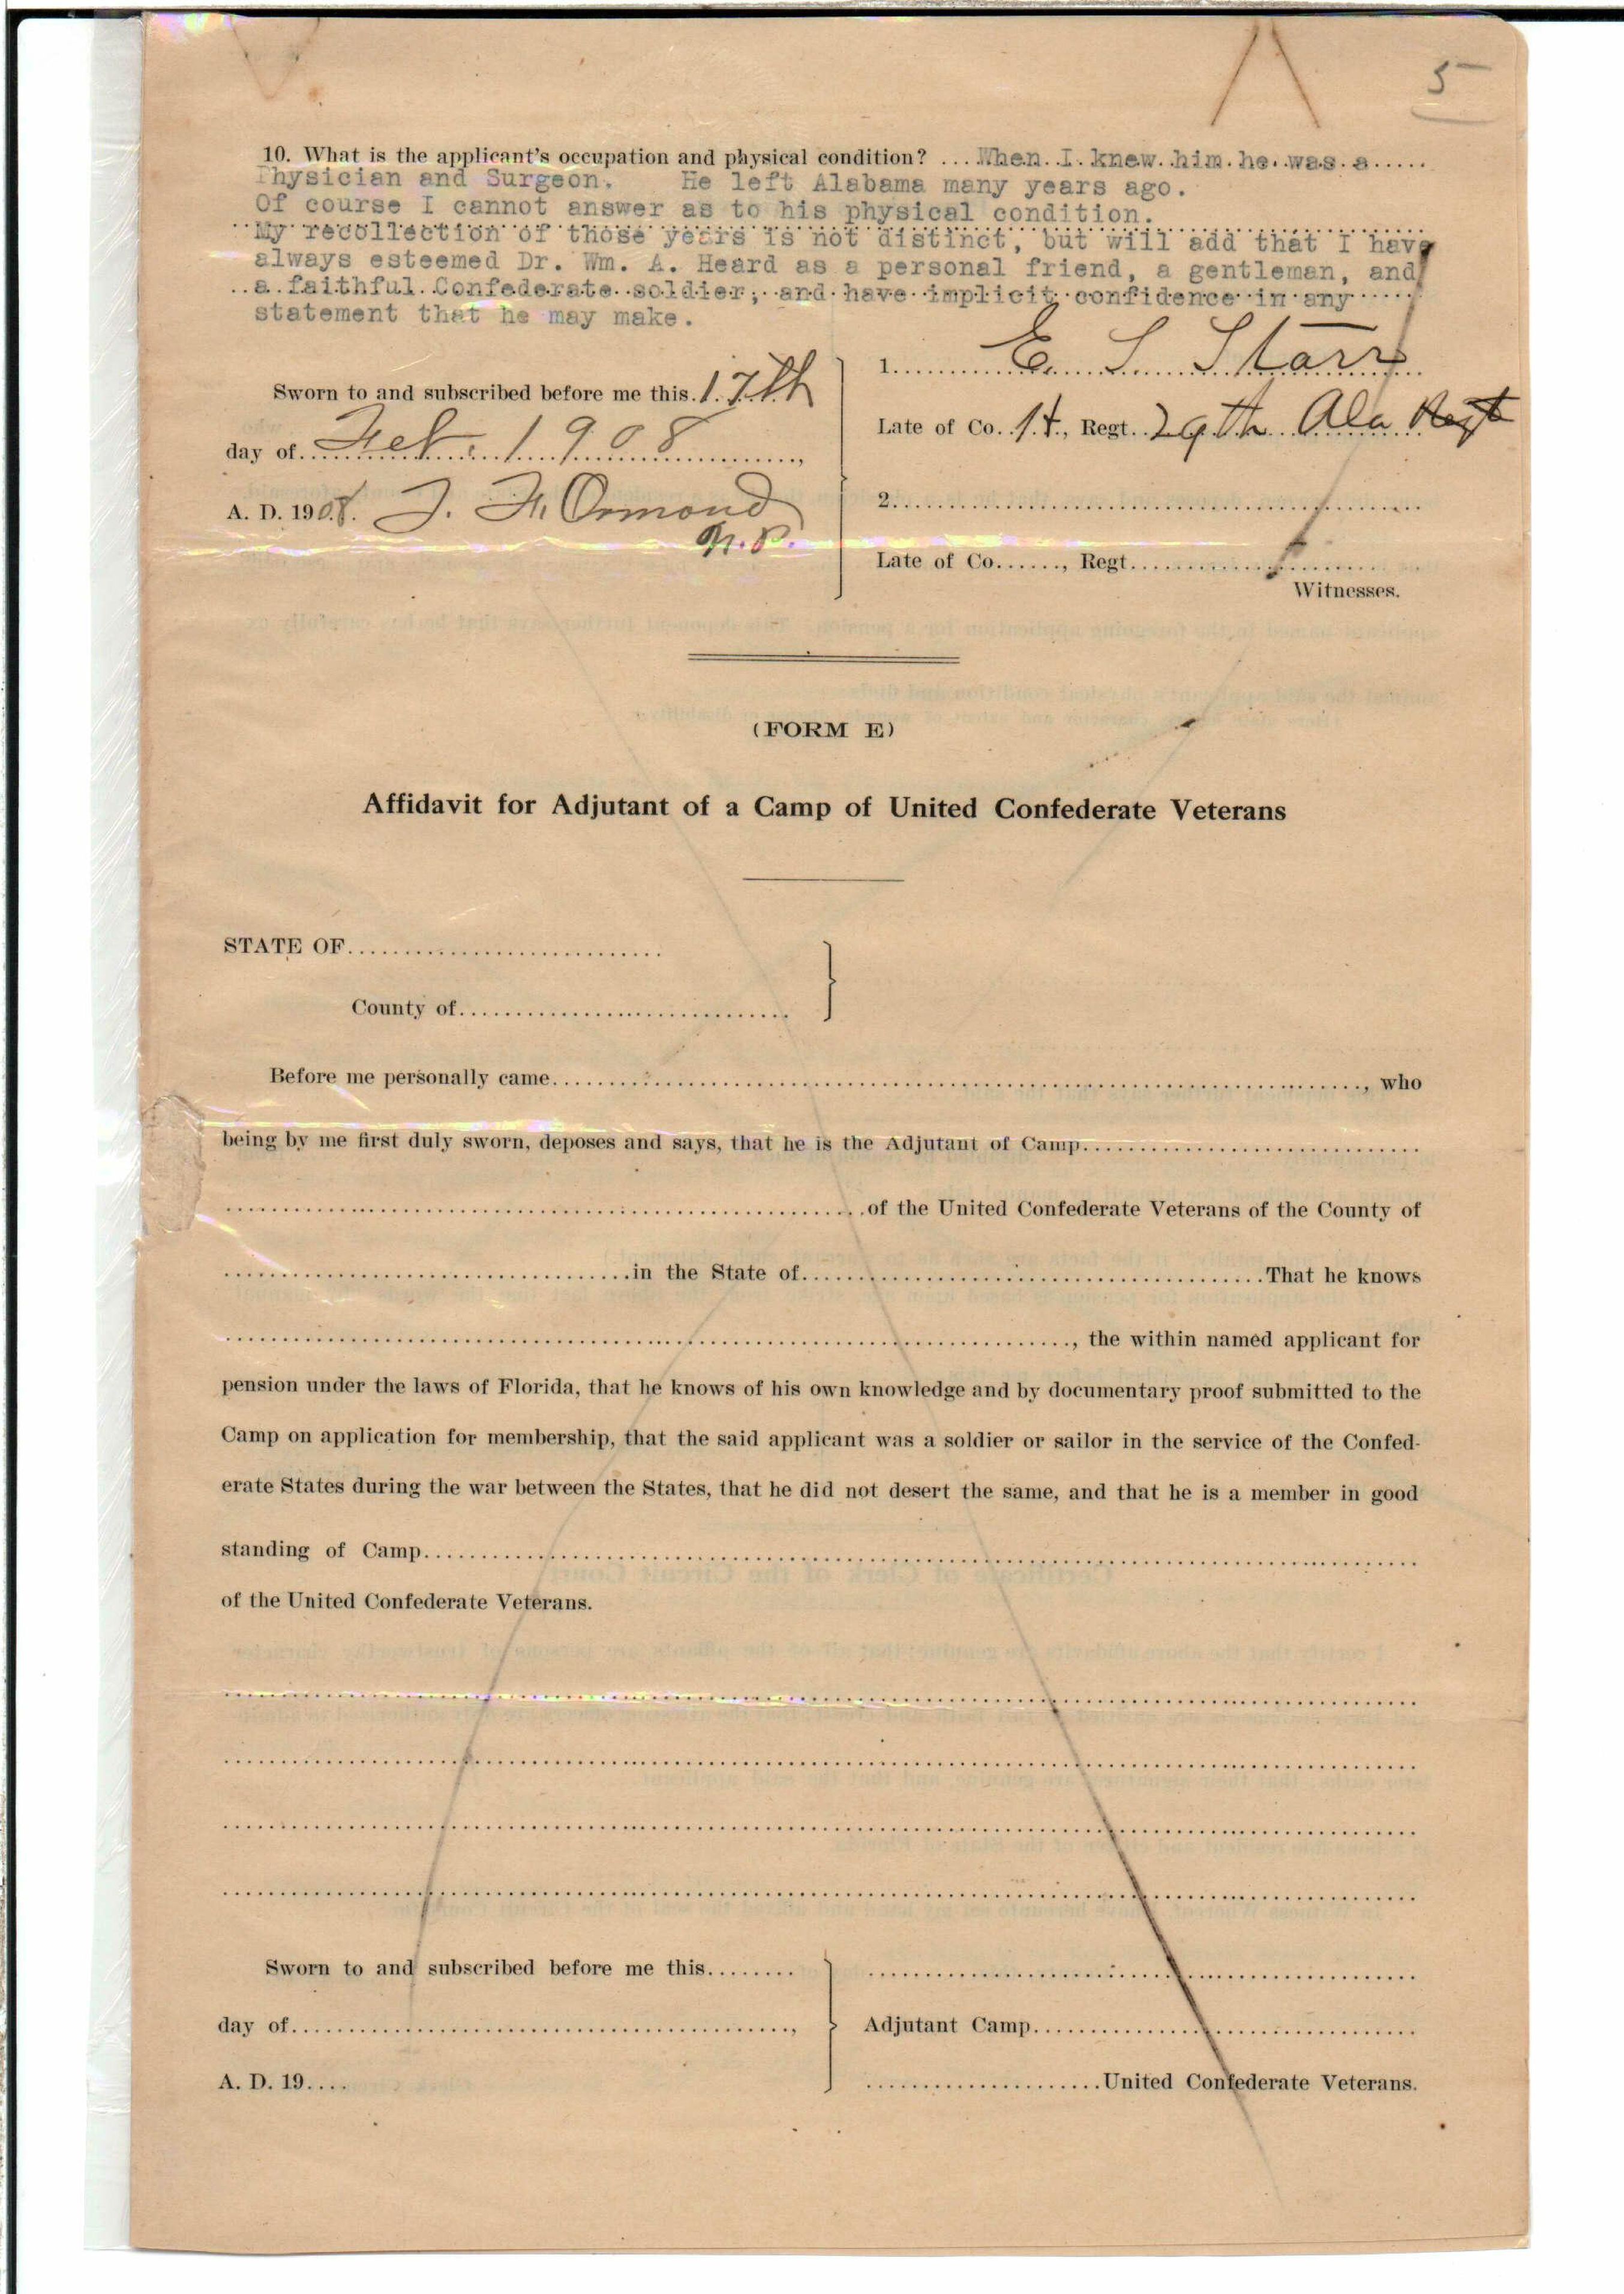 5
10. What is the applicant's occupation and physical condition? ... When I knew him he was a .....
Physician and Surgeon. He left Alabama many years ago.
Of course I cannot answer as to his physical condition.
My recollection of those years is not distinct, but will add that I have
always esteemed Dr. Wm. A. Heard as a personal friend, a gentleman, and
a faithful Confederate soldier; and have implicit confidence in any
statement that he may make.
1. E. S. Starr
Sworn to and subscribed before me this 17th
Late of Co. , Regt. 29th Ala Regt
day of Feb. 1908,
A. D. 1908. J. F. Ormond
N.P.
2.
Late of Co......, Regt.
Witnesses.
(FORM E)
Affidavit for Adjutant of a Camp of United Confederate Veterans
STATE OF
County of
Before me personally came , who
being by me first duly sworn, deposes and says, that he is the Adjutant of Camp
of the United Confederate Veterans of the County of
in the State of That he knows
, the within named applicant for
pension under the laws of Florida, that he knows of his own knowledge and by documentary proof submitted to the
Camp on application for membership, that the said applicant was a soldier or sailor in the service of the Confed-
erate States during the war between the States, that he did not desert the same, and that he is a member in good
standing of Camp
of the United Confederate Veterans.
Sworn to and subscribed before me this
day of ,
Adjutant Camp
A. D. 19....
United Confederate Veterans.